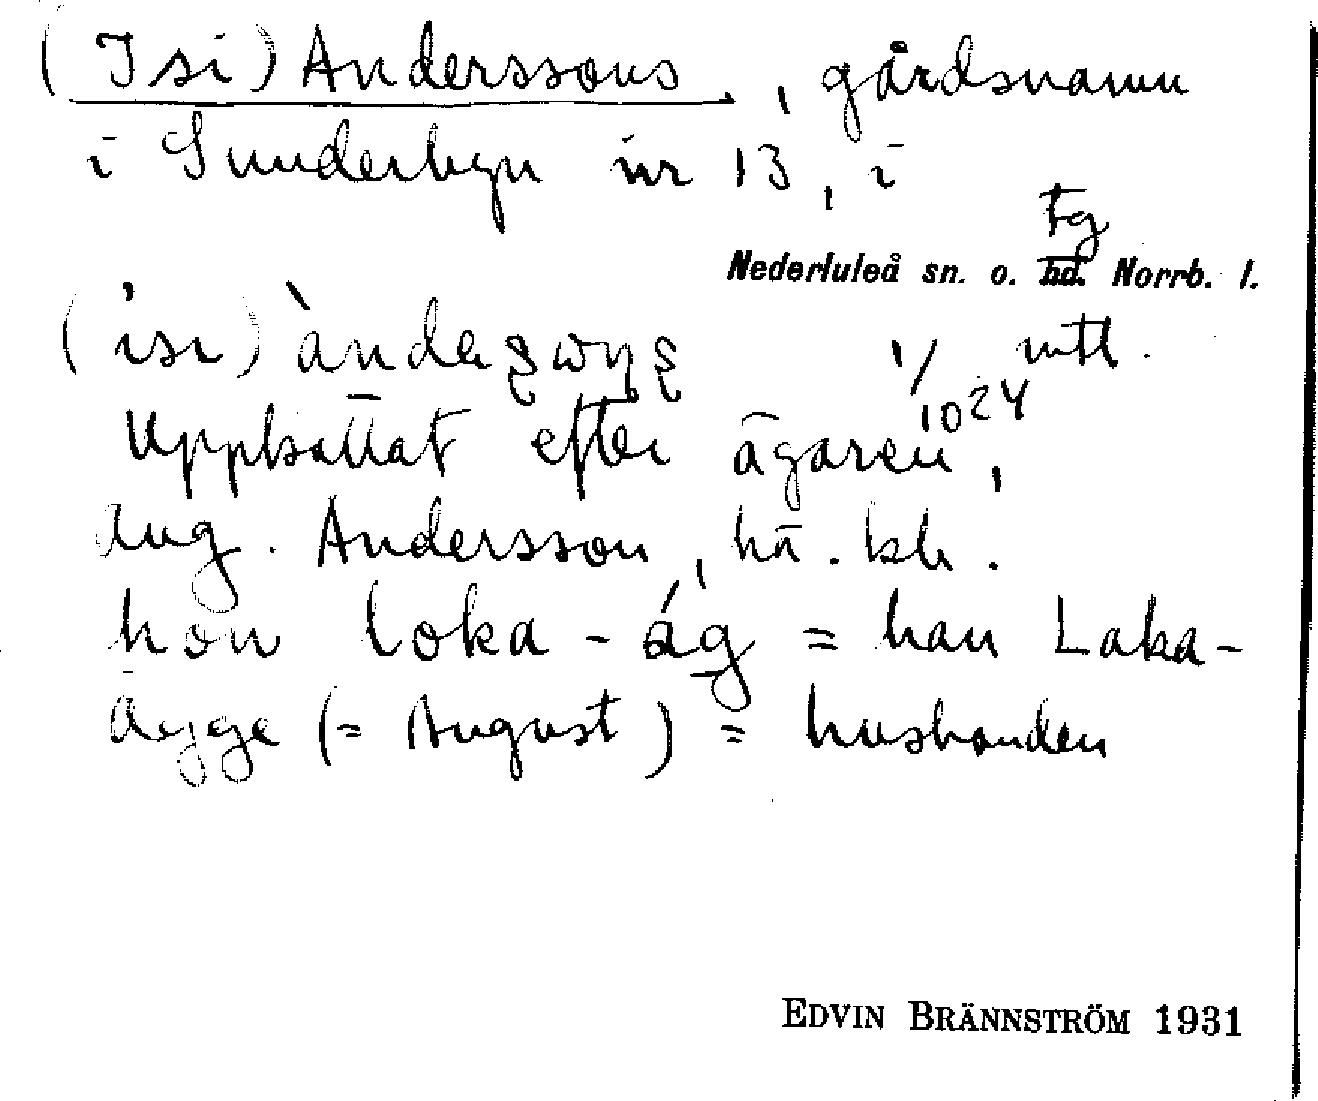 (Isi) Anderssons, gårdsnamn
i Sunderbyn nr 13, i
tg
Nederluleå sn. o. hd. Norrb. l.
(ɩsɩ) àndeʂωɳʂ 1/1024 mtl.
Uppkallat efter ägaren,
Aug. Andersson, hä. bl.
hon loka-ág = han Laka-
Agge (= August) = husbonden
EDVIN BRÄNNSTRÖM 1931